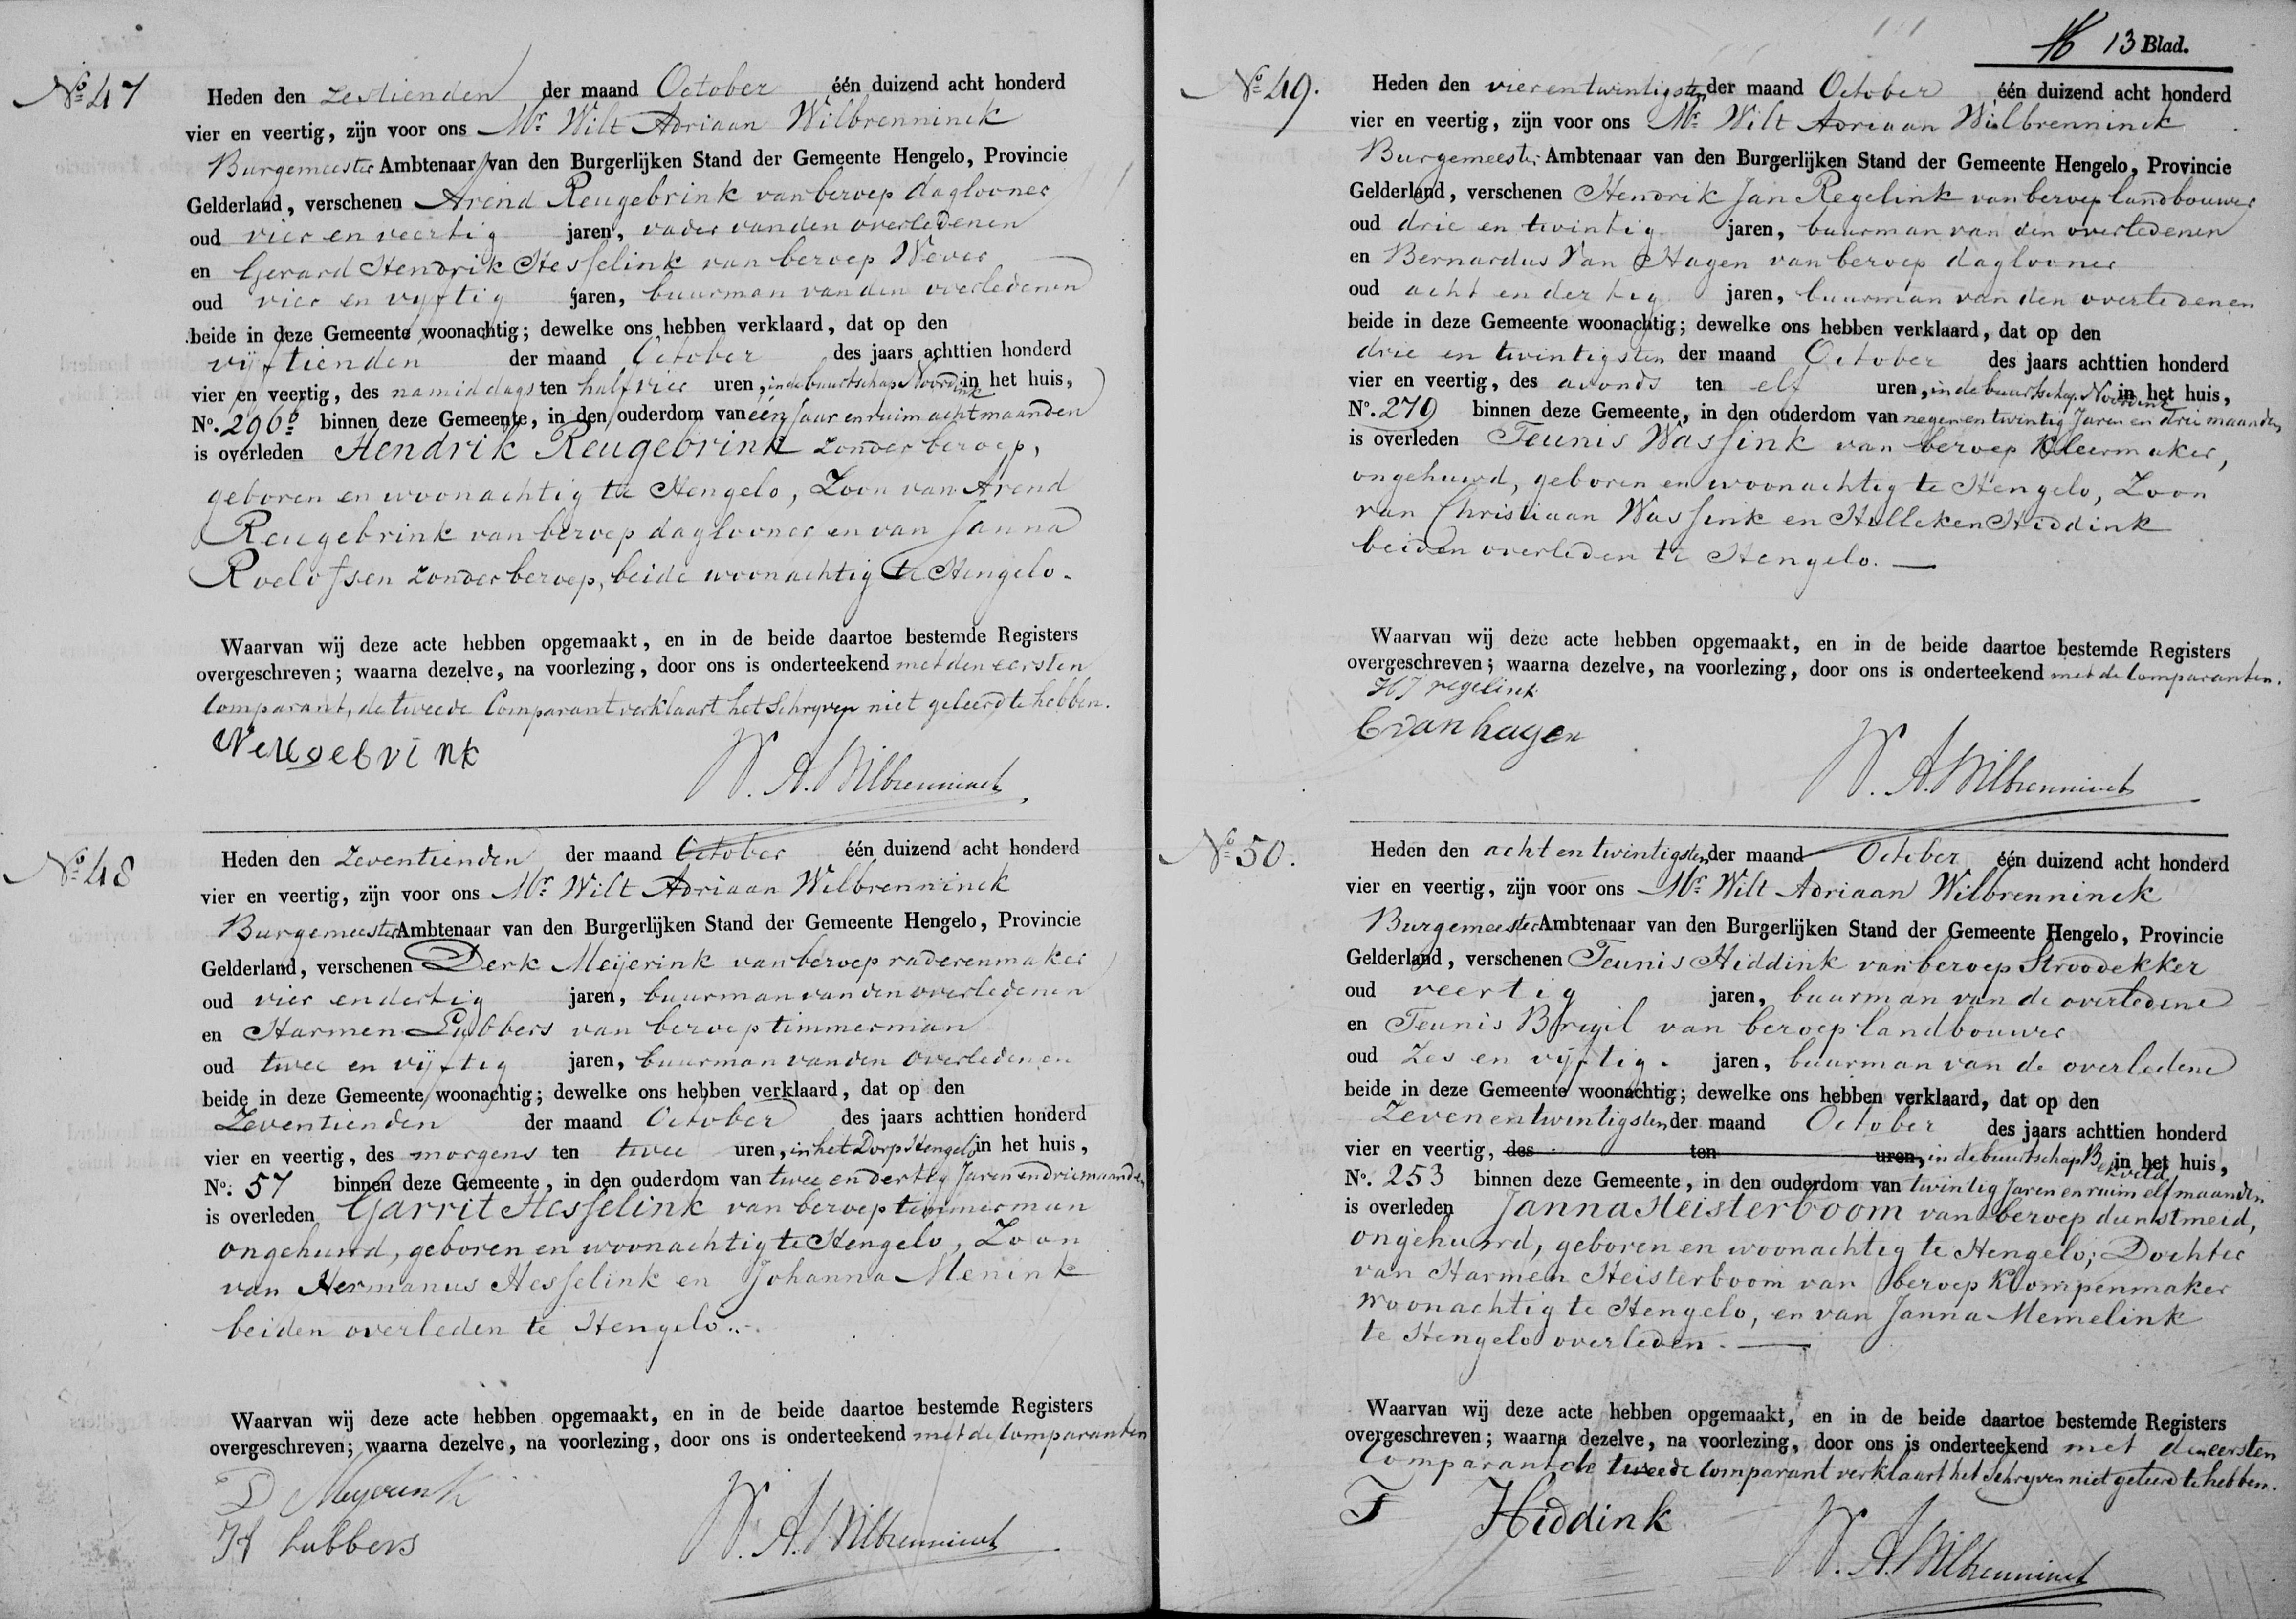 No 47
Heden den Zestienden der maand October één duizend acht honderd
vier en veertig, zijn voor ons Mr. Wilt Adriaan Wilbrenninck
Burgemeester Ambtenaar van den Burgerlijken Stand der Gemeente Hengelo, Provincie
Gelderland, verschenen Arend Reugebrink van beroep daglooner
oud vier en veertig jaren, vader van den overledenen
en Gerard Hendrik Hesselink van beroep Wever
oud vier en vyftig jaren, buurman van den overledenen
beide in deze Gemeente woonachtig; dewelke ons hebben verklaard, dat op den
vijftienden der maand October des jaars achttien honderd
vier en veertig, des namiddags ten half vier uren, in de buurtschap Noordink in het huis,
No. 296b binnen deze Gemeente, in den ouderdom van één Jaar en ruim acht maanden
is overleden Hendrik Reugebrink zonder beroep,
geboren en woonachtig te Hengelo, Zoon van Arend
Reugebrink van beroep daglooner en van Janna
Roelofsen zonder beroep, beide woonachtig te Hengelo.
Waarvan wij deze acte hebben opgemaakt, en in de beide daartoe bestemde Registers
overgeschreven; waarna dezelve, na voorlezing, door ons is onderteekend met den eersten
Comparant, de tweede Comparant verklaart het Schryven niet geleerd te hebben.
W. A. Wilbrenninck
No 48
Heden den Zeventienden der maand October één duizend acht honderd
vier en veertig, zijn voor ons Mr. Wilt Adriaan Wilbrenninck
Burgemeester Ambtenaar van den Burgerlijken Stand der Gemeente Hengelo, Provincie
Gelderland, verschenen Derk Meijerink van beroep raderenmaker
oud vier en dertig jaren, buurman van den overledenen
en Harmen Lubbers van beroep timmerman
oud twee en vijftig jaren, buurman van den overledenen
beide in deze Gemeente woonachtig; dewelke ons hebben verklaard, dat op den
Zeventienden der maand October des jaars achttien honderd
vier en veertig, des morgens ten twee uren, in het Dorp Hengelo in het huis,
No. 57 binnen deze Gemeente, in den ouderdom van twee en dertig Jaren en drie maanden
is overleden Garrit Hesselink van beroep timmerman
ongehuwd, geboren en woonachtig te Hengelo, Zoon
van Hermanus Hesselink en Johanna Menink
beiden overleden te Hengelo.
Waarvan wij deze acte hebben opgemaakt, en in de beide daartoe bestemde Registers
overgeschreven; waarna dezelve, na voorlezing, door ons is onderteekend met de Comparanten
D Meyerink
H Lubbers
W. A. Wilbrenninck
13 Blad.
No 49.
Heden den vierentwintigsten der maand October één duizend acht honderd
vier en veertig, zijn voor ons Mr. Wilt Adriaan Wilbrenninck
Burgemeester Ambtenaar van den Burgerlijken Stand der Gemeente Hengelo, Provincie
Gelderland, verschenen Hendrik Jan Regelink van beroep landbouwer
oud drie en twintig jaren, buurman van den overledenen
en Bernardus Van Hagen van beroep daglooner
oud acht en dertig jaren, buurman van den overledenen
beide in deze Gemeente woonachtig; dewelke ons hebben verklaard, dat op den
drie en twintigsten der maand October des jaars achttien honderd
vier en veertig, des avonds ten elf uren, in de buurtschap Noordink in het huis,
No. 279 binnen deze Gemeente, in den ouderdom van negen en twintig Jaren en drie maanden
is overleden Teunis Wassink van beroep Kleermaker,
ongehuwd, geboren en woonachtig te Hengelo, Zoon
van Christiaan Wassink en Hilleken Hiddink
beiden overleden te Hengelo.
Waarvan wij deze acte hebben opgemaakt, en in de beide daartoe bestemde Registers
overgeschreven; waarna dezelve, na voorlezing, door ons is onderteekend met de Comparanten.
HJ regelink
B van hagen
W. A. Wilbrenninck
No 50.
Heden den acht en twintigsten der maand October één duizend acht honderd
vier en veertig, zijn voor ons Mr. Wilt Adriaan Wilbrenninck
Burgemeester Ambtenaar van den Burgerlijken Stand der Gemeente Hengelo, Provincie
Gelderland, verschenen Teunis Hiddink van beroep Stroodekker
oud veertig jaren, buurman van de overledene
en Teunis Bregil van beroep landbouwer
oud Zes en vijftig. jaren, buurman van de overledene
beide in deze Gemeente woonachtig; dewelke ons hebben verklaard, dat op den
Zevenentwintigsten der maand October des jaars achttien honderd
vier en veertig, des ten uren, in de buurtschap Bekveld in het huis,
No. 253 binnen deze Gemeente, in den ouderdom van twintig Jaren en ruim elf maanden
is overleden Janna Heisterboom van beroep dienstmeid,
ongehuwd, geboren en woonachtig te Hengelo; Dochter
van Harmen Heisterboom van beroep Klompenmaker
woonachtig te Hengelo, en van Janna Memelink
te Hengelo overleden.
Waarvan wij deze acte hebben opgemaakt, en in de beide daartoe bestemde Registers
overgeschreven; waarna dezelve, na voorlezing, door ons is onderteekend met den eersten
Comparant de tweede Comparant verklaart het Schryven niet geleerd te hebben.
T Hiddink
W. A. Wilbrenninck